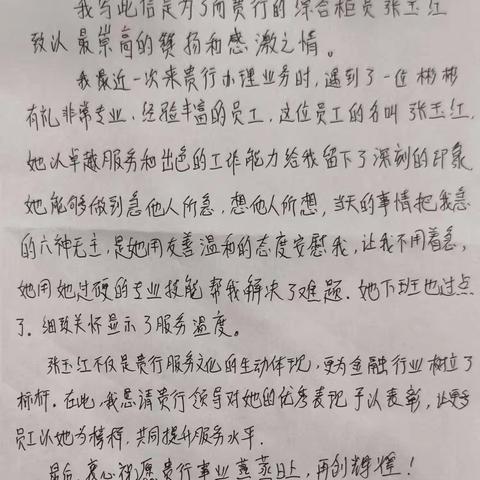 我写此信是为了向贵行的综合柜员张玉红
致以最崇高的赞扬和感激之情。
我最近一次来贵行办理业务时,遇到了一位彬彬
有礼非常专业、经验丰富的员工,这位员工的名叫张玉红,
她以卓越服务和出色的工作能力给我留下了深刻的印象
她能够做到急他人所急,想他人所想,当天的事情把我急
的六神无主,是她用友善温和的态度安慰我,让我不用着急,
她用她过硬的专业技能帮我解决了难题.她下班也过点
了.细致关怀显示了服务温度。
张玉红不仅是贵行服务文化的生动体现,更为金融行业树立了
标杆.在此,我恳请贵行领导对她的优秀表现予以表彰,让更多
员工以她为榜样,共同提升服务水平.
最后,衷心祝愿贵行事业蒸蒸日上,再创辉煌!